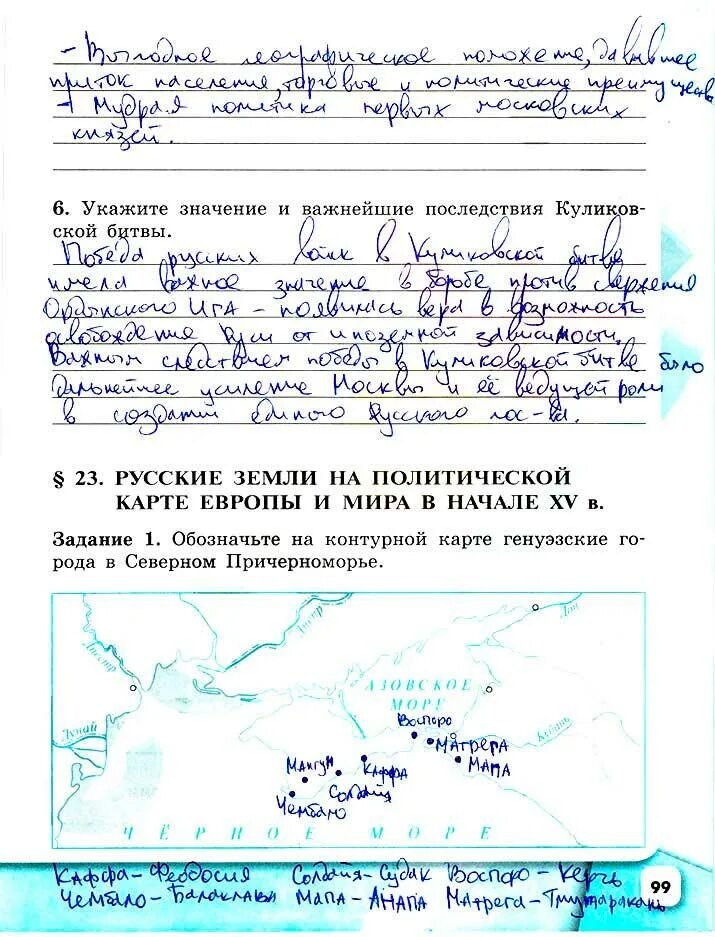 - Выгодное географическое положение, дававшее
приток населения, торговые и политические преимущества
- Мудрая политика первых московских
князей.
6. Укажите значение и важнейшие последствия Куликов-
ской битвы.
Победа русских войск в Куликовской битве
имела важное значение в борьбе против свержения
Ордынского Ига - появилась вера в возможность
освобождение Руси от иноземной зависимости.
Важным следствием победы в Куликовской битве было
дальнейшее усиление Москвы и её ведущей роли
в создании единого Русского гос-ва.
§ 23. РУССКИЕ ЗЕМЛИ НА ПОЛИТИЧЕСКОЙ
КАРТЕ ЕВРОПЫ И МИРА В НАЧАЛЕ XV в.
Задание 1. Обозначьте на контурной карте генуэзские го-
рода в Северном Причерноморье.
Днестр
Днепр
Дон
Дунай
АЗОВСКОЕ
МОРЕ
Кубань
Воспоро
Матрега
Мапа
Мангуп
Каффа
Солдайя
Чембало
ЧЁРНОЕ МОРЕ
Каффа - Феодосия Солдайя - Судак Воспоро - Керчь
Чембало - Балаклава Мапа - Анапа Матрега - Тмутаракань
99